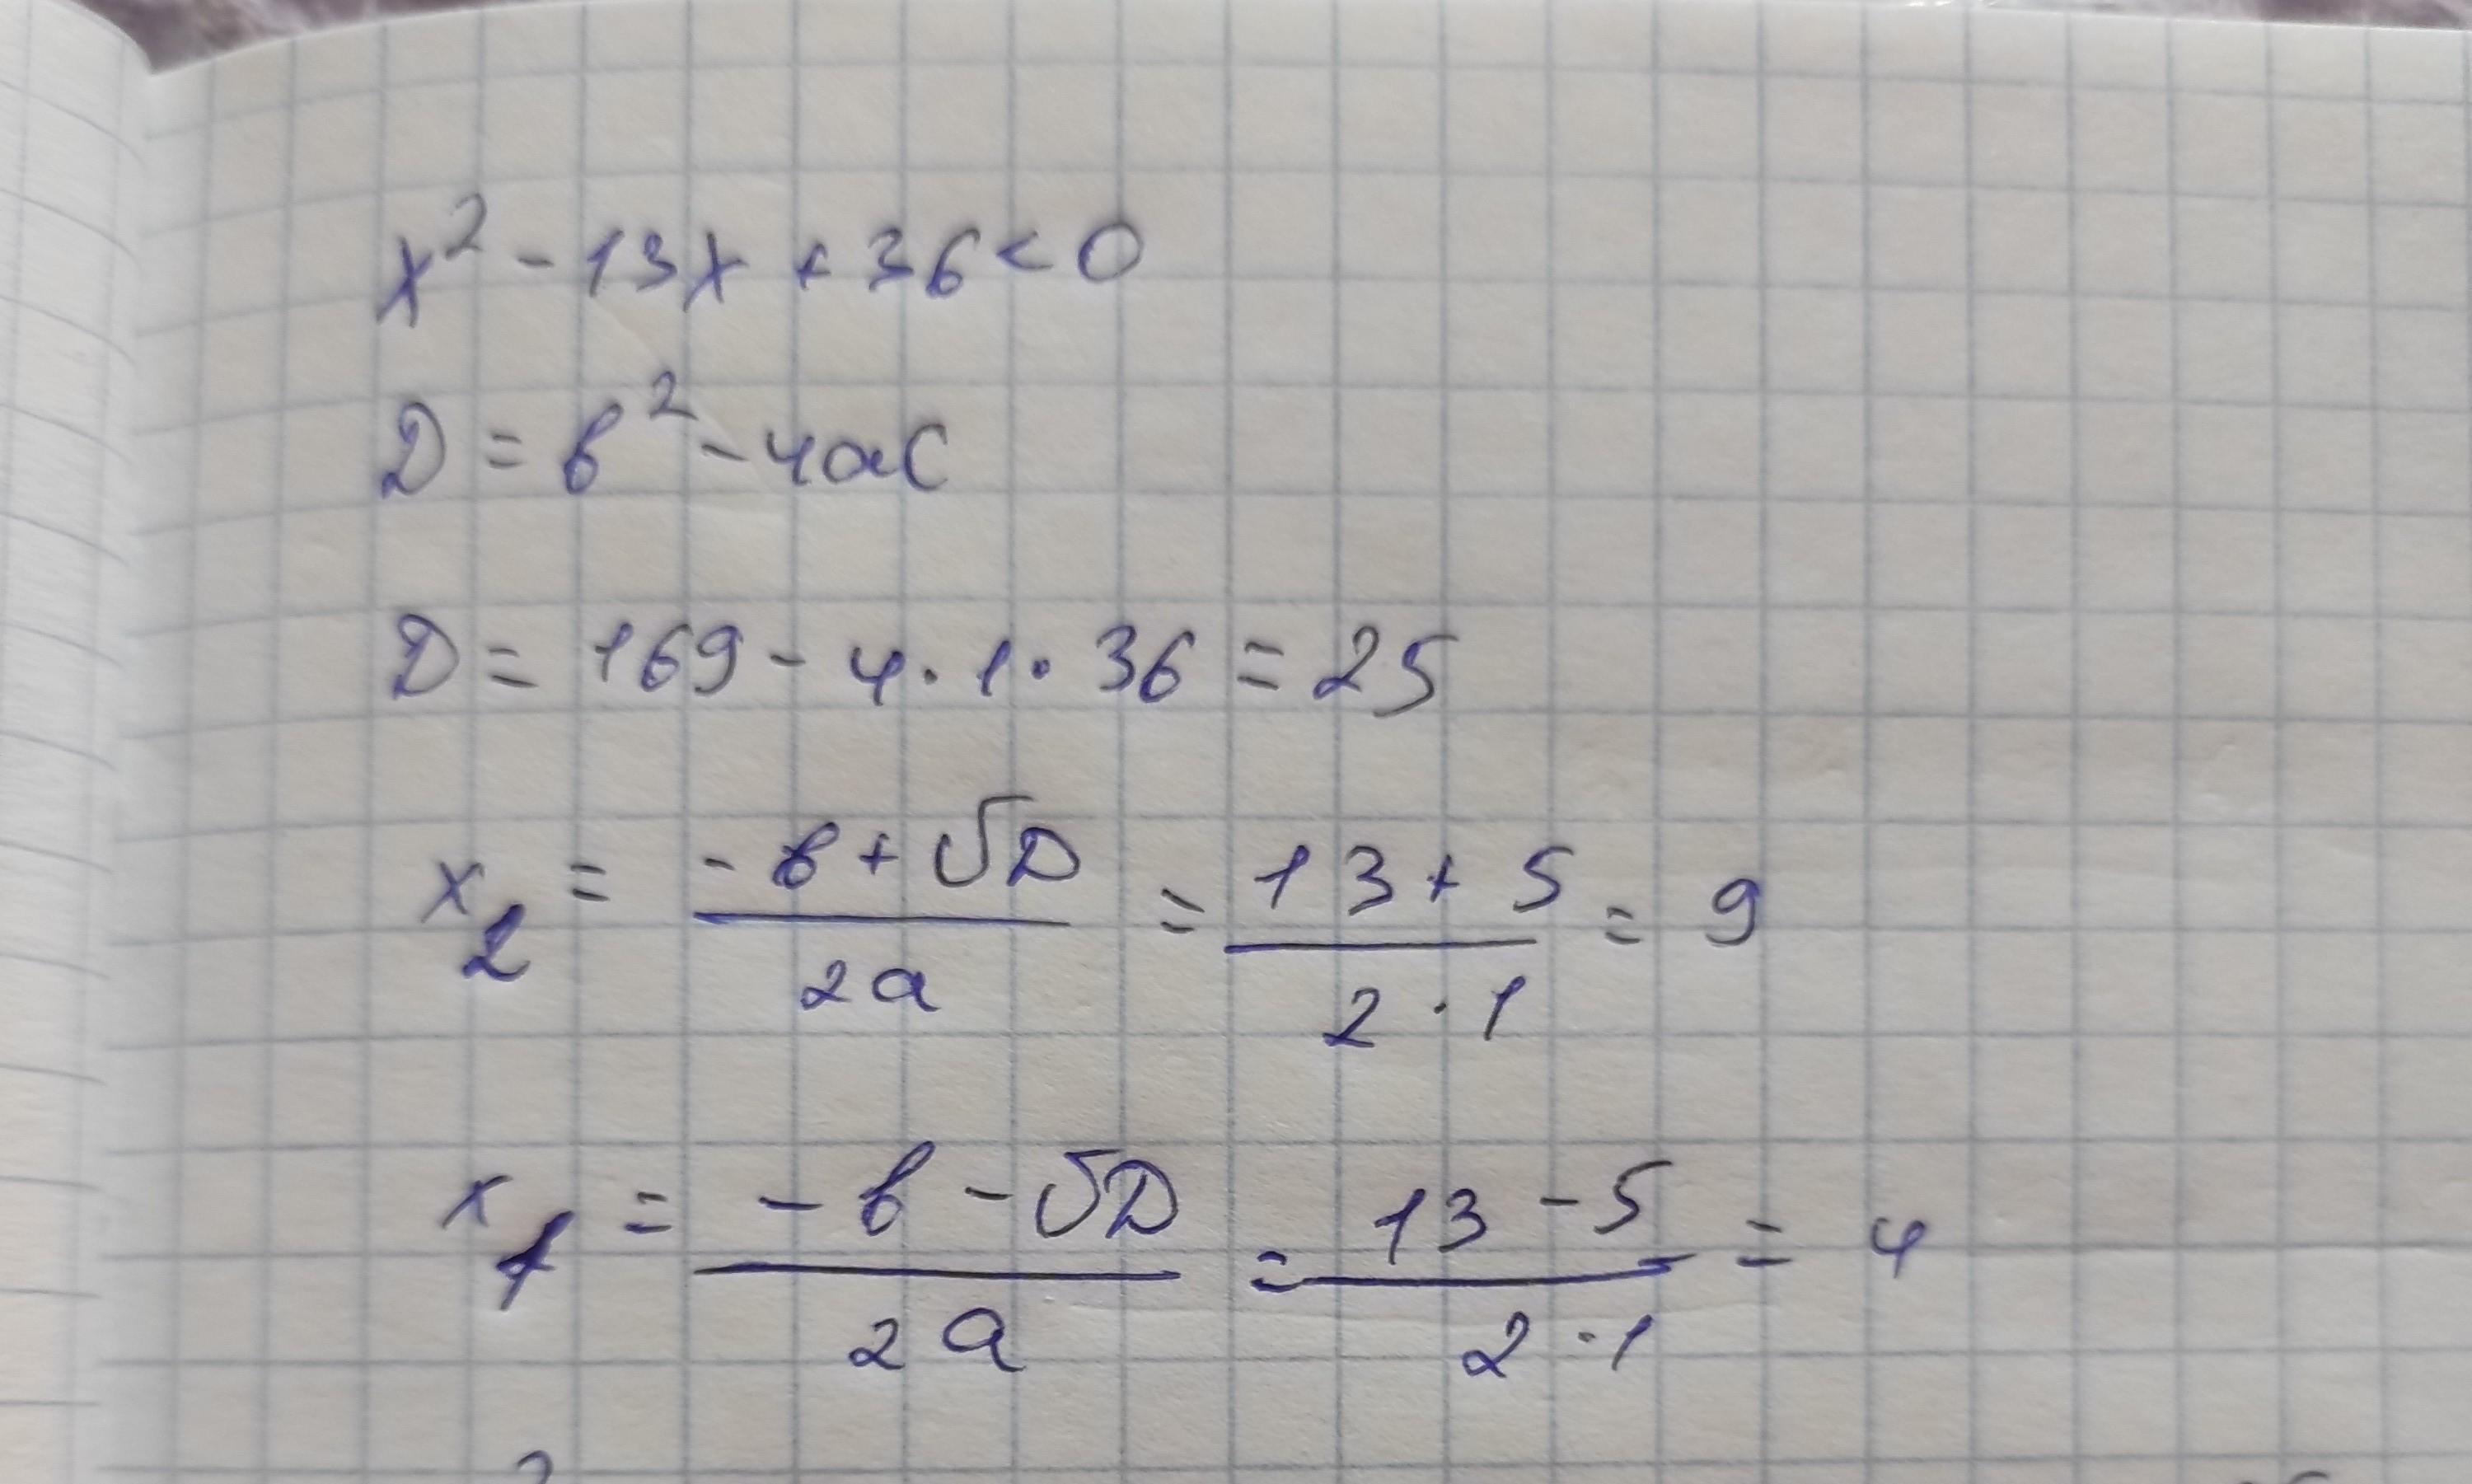 x² - 13x + 36 < 0
D = в² - 4ac
D = 169 - 4 · 1 · 36 = 25
x₂ = (-в + √D) / 2a = (13 + 5) / 2 · 1 = 9
x₁ = (-в - √D) / 2a = (13 - 5) / 2 · 1 = 4